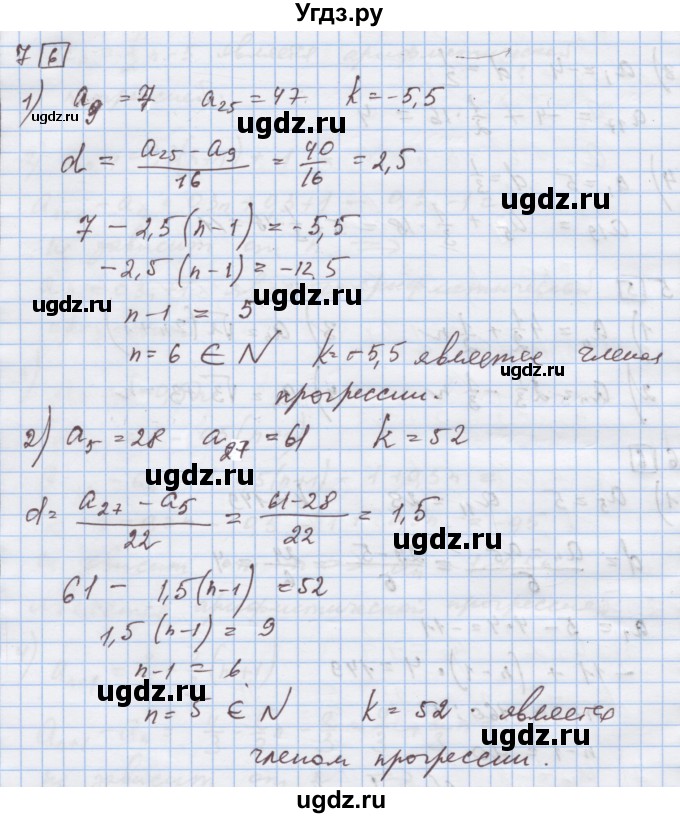 Угдз.ру
7 6
1) a₉ = 7 a₂₅ = 47 k = -5,5
ugdz.ru ugdz.ru
d = (a₂₅ - a₉)/16 = 40/16 = 2,5
ugdz.ru
7 - 2,5 (n-1) = -5,5
-2,5 (n-1) = -12,5
ugdz.ru ugdz.ru
n-1 = 5
n = 6 ∈ N k = -5,5 является членом
ugdz.ru
прогрессии.
2) a₅ = 28 a₂₇ = 61 k = 52
ugdz.ru
d = (a₂₇ - a₅)/22 = (61-28)/22 = 1,5
ugdz.ru
61 - 1,5 (n-1) = 52
1,5 (n-1) = 9
n-1 = 6
ugdz.ru
n = 5 ∈ N k = 52 является
ugdz.ru
членом прогрессии.
ugdz.ru